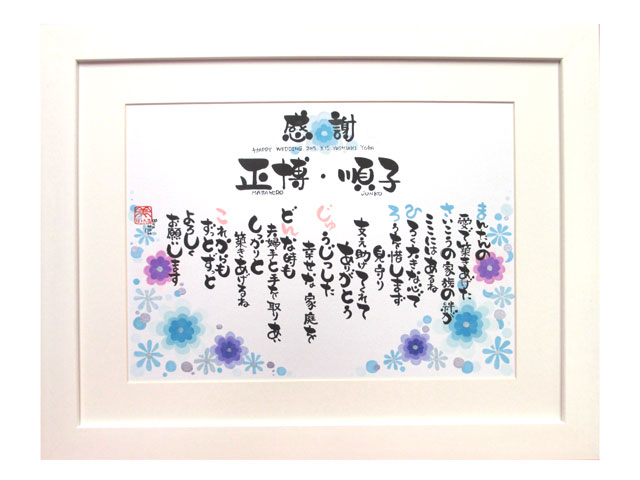 感謝
HAPPY WEDDING
正博・順子
JUNKO
まんてんの
愛で築きあげた
さいこうの家族の絆が
ここにはあるね
ひろく大きな心で
ろうを惜しまず
見守り
支え助けてくれて
ありがとう
じゅうじつした
幸せな家庭を
どんな時も
夫婦手と手を取りあい
しっかりと
築きあげるね
これからも
ずっとずっと
よろしく
お願いします